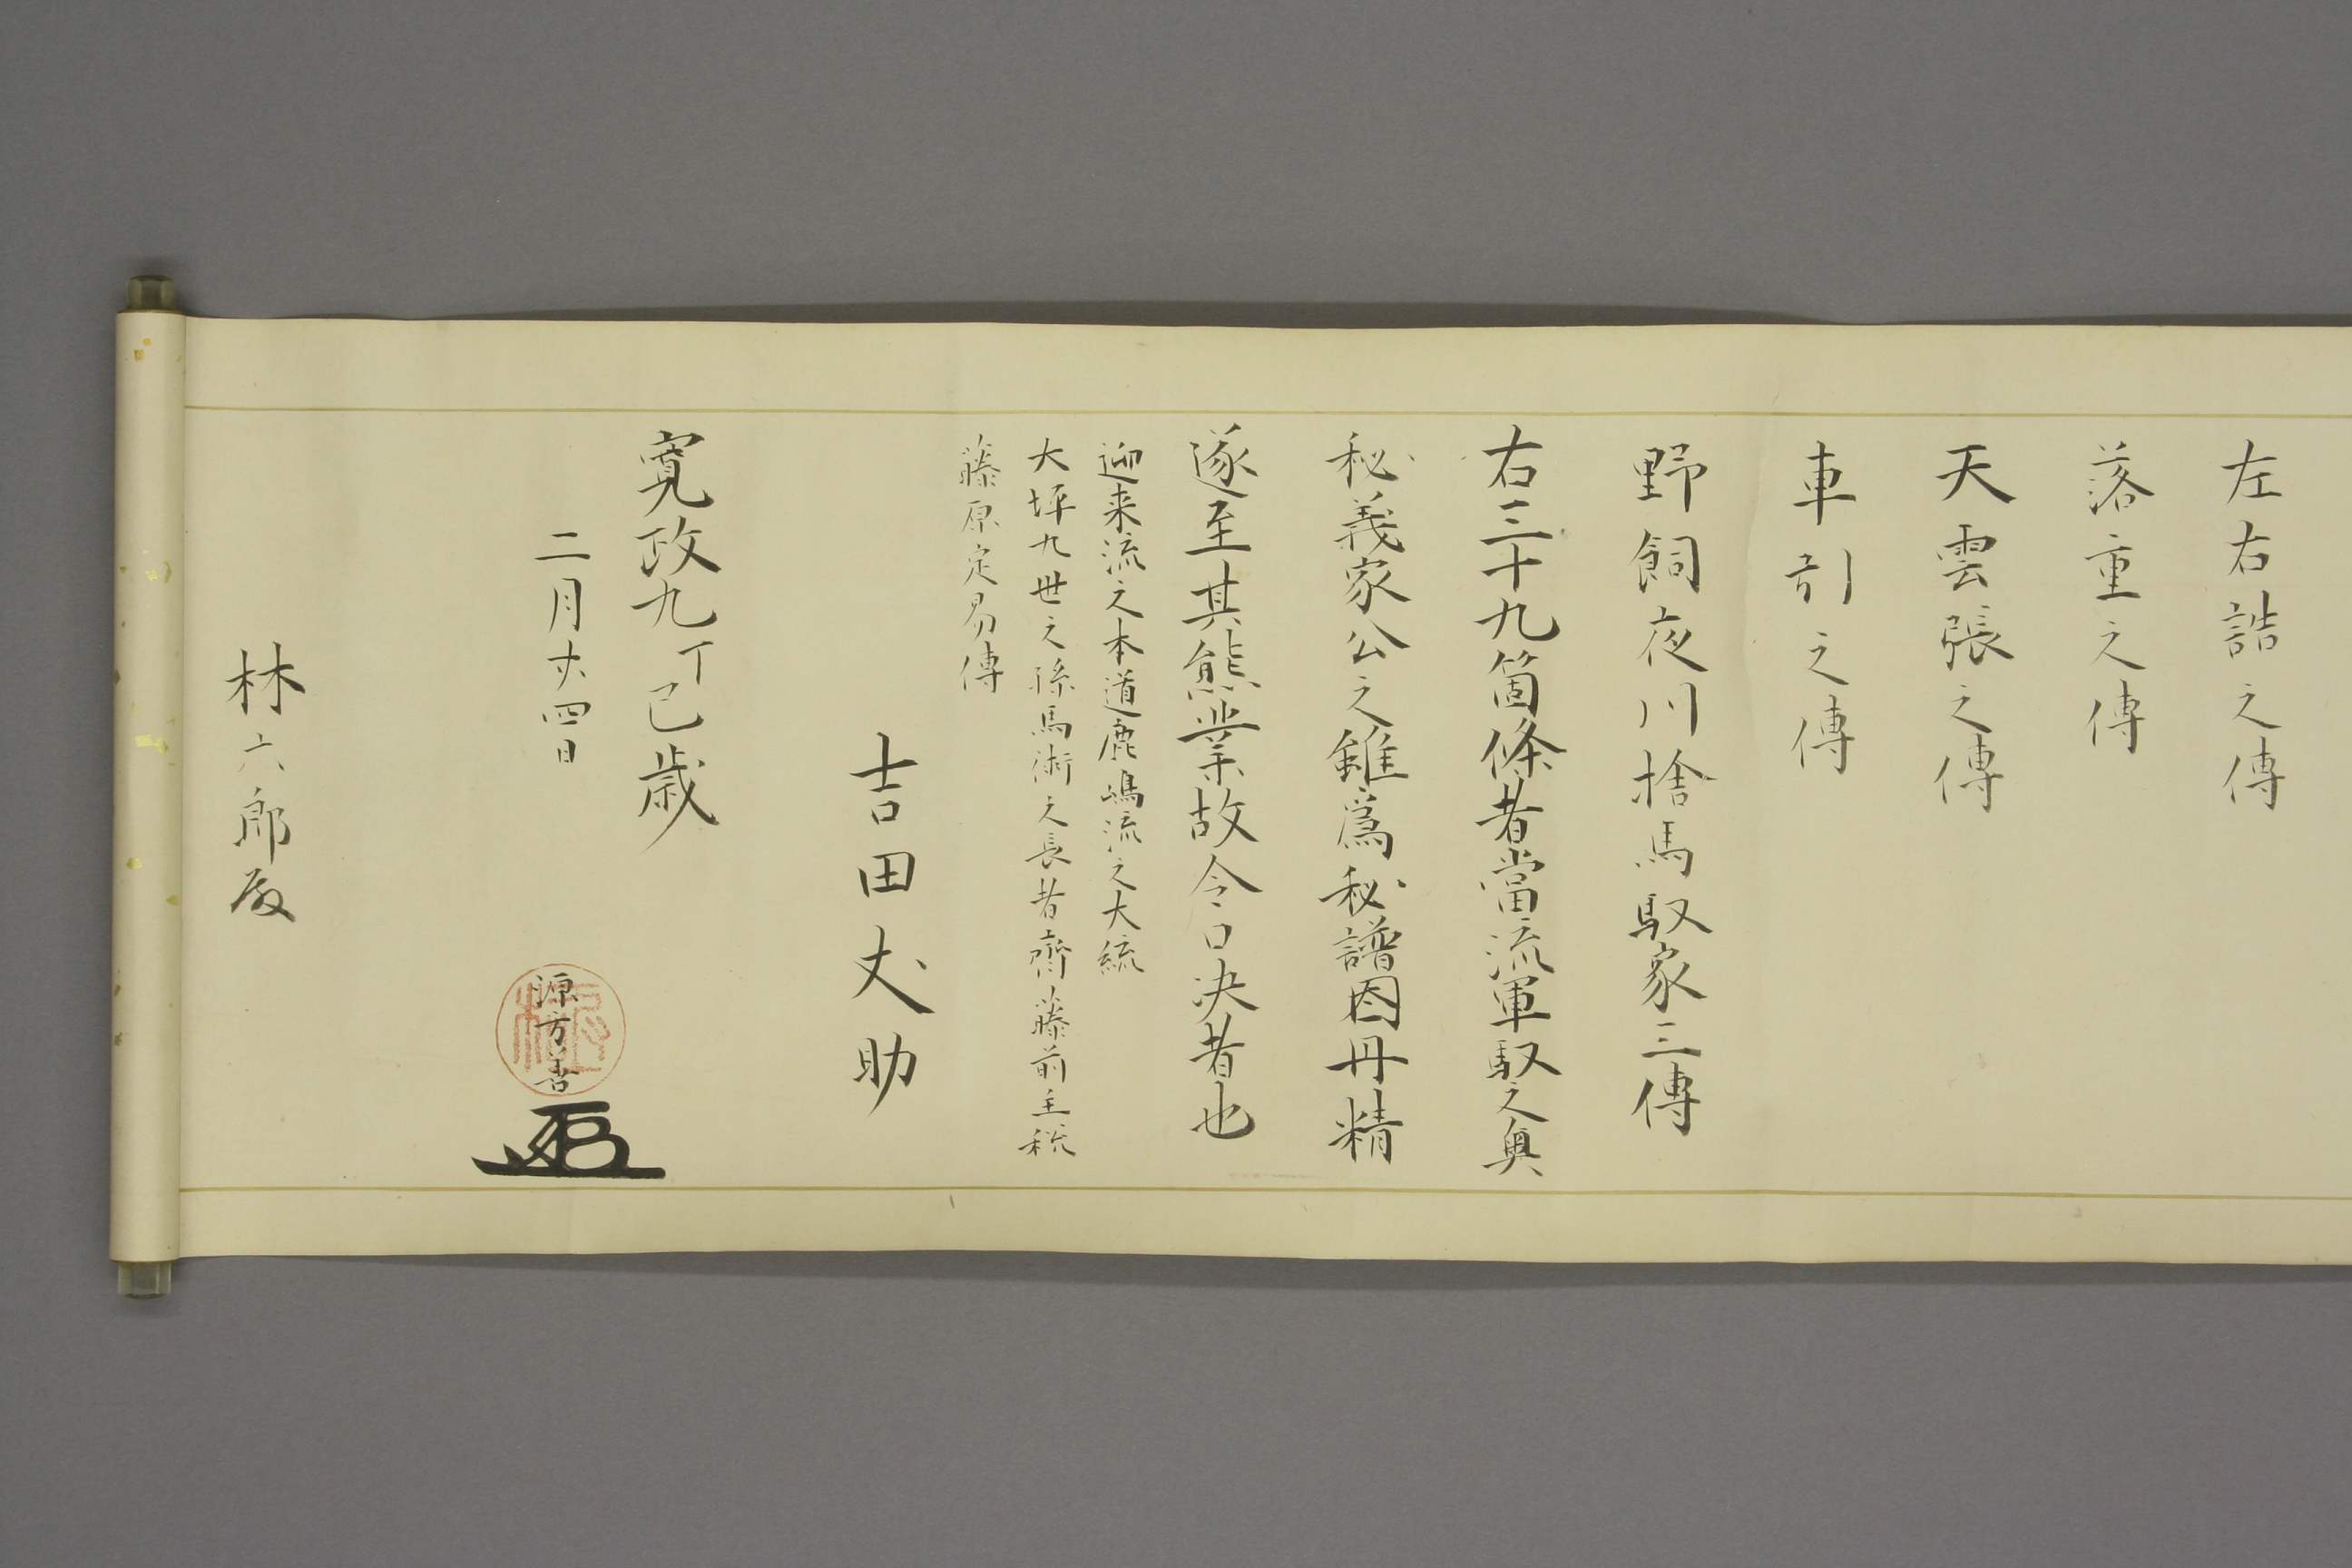 左右誥之傳
落重之傳
天雲張之傳
車引之傳
野飼夜川捨馬馭家三傳
右三十九箇條者當流軍馭之奥
秘義家公之雖爲秘譜因丹精
遂至其熊業故令口决者也
迎来流之本道鹿嶋流之大統
大坪九世之孫馬術之長者齊藤前主税
藤原定易傳
吉田丈助
寛政九丁巳歳
二月廿四日
源方善
林六郎殿